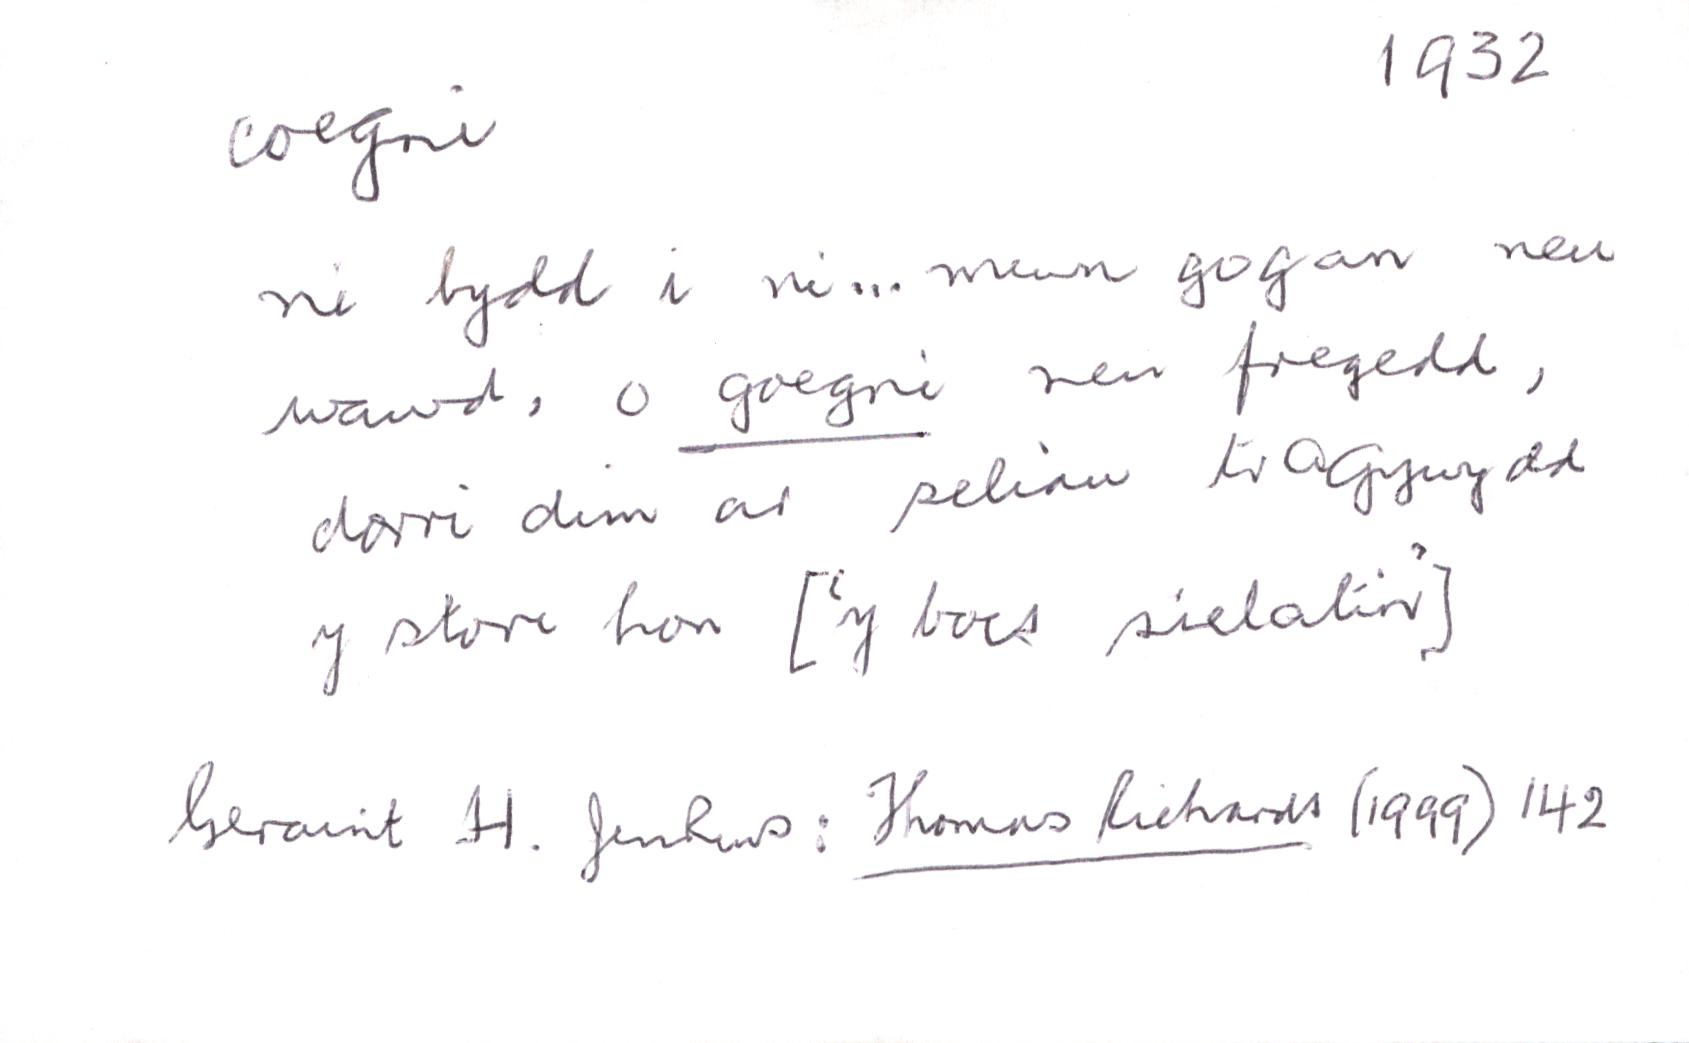 1932
coegni
ni bydd i ni... mewn gogan neu
wawd, o goegni neu fregedd,
dorri dim ar seliau tragywydd
y stori hon ["y bocs sielatin"]
Geraint H. Jenkins: Thomas Richards (1999) 142